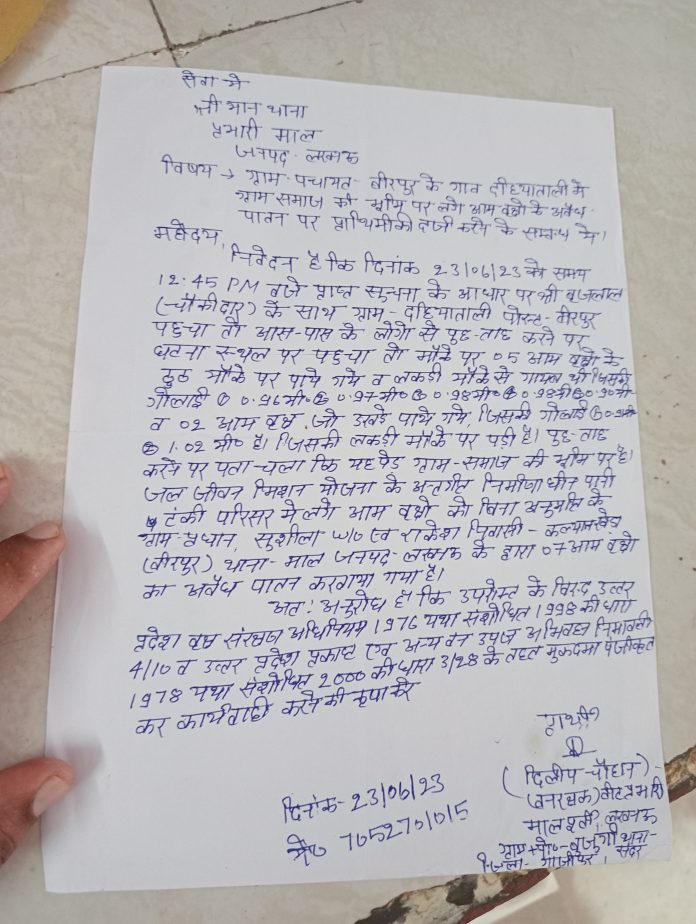 सेवा मे
श्री मान थाना
प्रभारी माल
जनपद - लखनऊ
विषय → ग्राम-पंचायत - वीरपुर के गाव दहियाताली मे
ग्राम समाज की भूमि पर लगे आम वृक्षो के अवैध
पातन पर प्राथिमीकी दर्ज करने के सम्बन्ध मे।
महोदय,
निवेदन है कि दिनांक 23/06/23 को समय
12:45 PM बजे प्राप्त सूचना के आधार पर श्री बृजलाल
(चौकीदार) के साथ ग्राम - दहियाताली पोस्ट - वीरपुर
पहुचा तो आस-पास के लोगो से पुछ-ताछ करने पर
घटना स्थल पर पहुचा तो मौके पर 05 आम वृक्षो के
ठुठ मौके पर पाये गये व लकडी मौके से गायब थी जिसकी
गोलाई ① 0.96मी० ② 0.97मी० ③ 0.98मी० ④ 0.98मी० ⑤ 0.90मी०
व 02 आम वृक्ष जो उखडे पाये गये, जिसकी गोलाई ①
② 1.02 मी० है। जिसकी लकडी मौके पर पडी है। पुछ-ताछ
करने पर पता चला कि यह पेड़ ग्राम-समाज की भूमि पर है।
जल जीवन मिशन योजना के अन्तर्गत निर्माणाधीन पानी
टंकी परिसर मे लगे आम वृक्षो को बिना अनुमति के
ग्राम-प्रधान, सुशीला w/o राकेश निवासी - कल्यानखेड़ा
(वीरपुर) थाना - माल जनपद - लखनऊ के द्वारा 07 आम वृक्षो
का अवैध पातन करवाया गया है।
अत: अनुरोध है कि उपरोक्त के विरुद्ध उत्तर
प्रदेश वृक्ष संरक्षण अधिनियम 1976 यथा संशोधित 1998 की धारा
4/10 व उत्तर प्रदेश प्रकाष्ठ एवं अन्य वन उपज अभिवहन नियमावली
1978 यथा संशोधित 2000 की धारा 3/28 के तहत मुकदमा पंजीकृत
कर कार्यवाही करने की कृपा करे
प्रार्थी
(दिलीप चौहान)
(वनरक्षक)
माल लखनऊ
ग्राम+पो०- थाना-
जिला- गाजीपुर, सदर
दिनांक - 23/06/23
मो० 7052701015